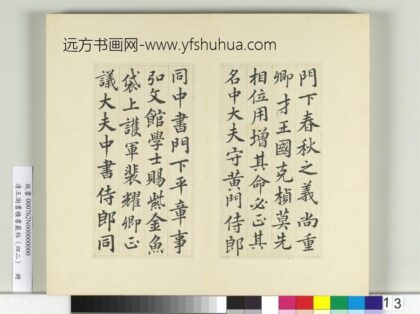 远方书画网-www.yfshuhua.com
門下春秋之義尚重
卿才王國克楨莫先
相位用增其命必正其
名中大夫守黄門侍郎
同中書門下平章事
弘文館學士賜紫金魚
袋上護軍裴耀卿正
議大夫中書侍郎同
13